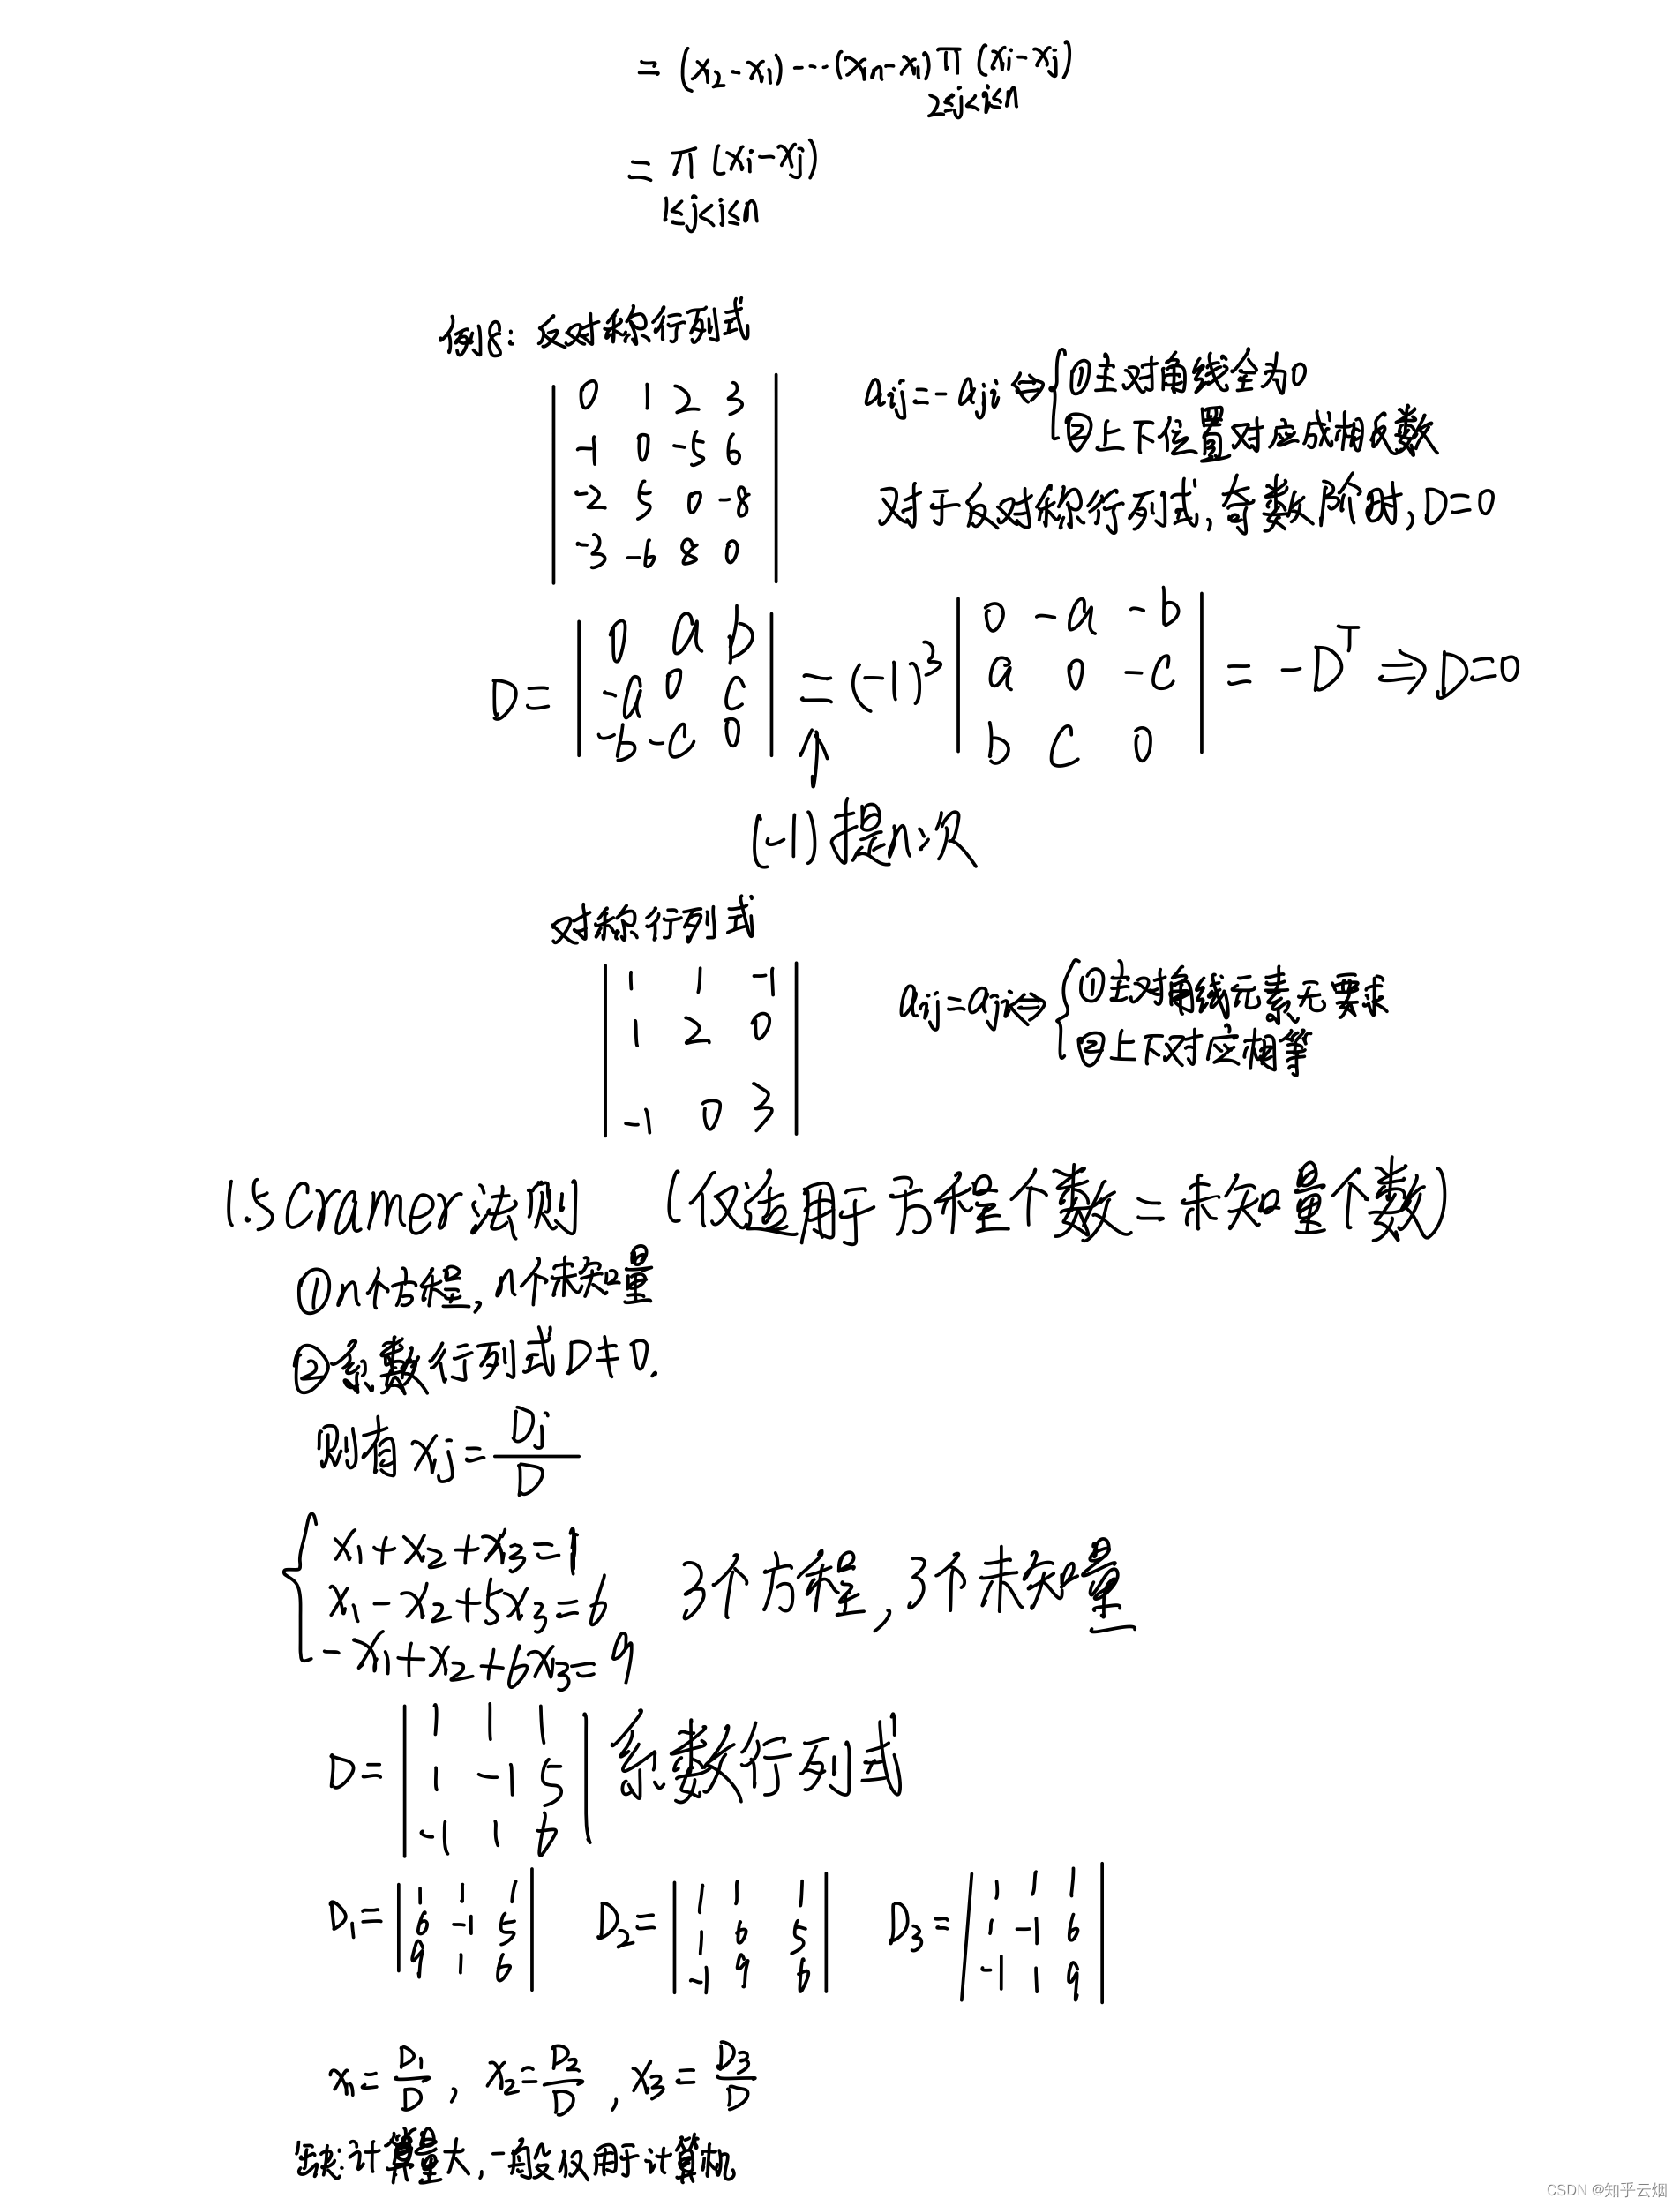 = (x₂-x₁)⋯(xₙ-x₁) π (xᵢ-xⱼ)
2≤j<i≤n
= π (xᵢ-xⱼ)
1≤j<i≤n
例8: 反对称行列式
| 0 1 2 3 |
| -1 0 -5 6 |
| -2 5 0 -8 |
| -3 -6 8 0 |
aᵢⱼ=-aⱼᵢ⇔{①主对角线全为0
②上下位置对应成相反数
对于反对称行列式,奇数阶时,D=0
D= | 0 a b | = (-1)³ | 0 -a -b | = -Dᵀ ⇒ D=0
| -a 0 c | | a 0 -c |
| -b -c 0 | | b c 0 |
↑
(-1)提n次
对称行列式
| 1 1 -1 |
| 1 2 0 |
| -1 0 3 |
aᵢⱼ=aⱼᵢ⇔{①主对角线元素无要求
②上下对应相等
1.5 Cramer法则 (仅适用于方程个数=未知量个数)
①n个方程,n个未知量
②系数行列式D≠0.
则有 xⱼ= Dⱼ/D
{ x₁+x₂+x₃=1
x₁-x₂+5x₃=6 3个方程,3个未知量
-x₁+x₂+6x₃=9
D= | 1 1 1 | 系数行列式
| 1 -1 5 |
| -1 1 6 |
D₁= | 1 1 1 | D₂= | 1 1 1 | D₃= | 1 1 1 |
| 6 -1 5 | | 1 6 5 | | 1 -1 6 |
| 9 1 6 | | -1 9 6 | | -1 1 9 |
x₁= D₁/D , x₂= D₂/D , x₃= D₃/D
缺:计算量大,一般仅用于计算机
CSDN @知乎云烟